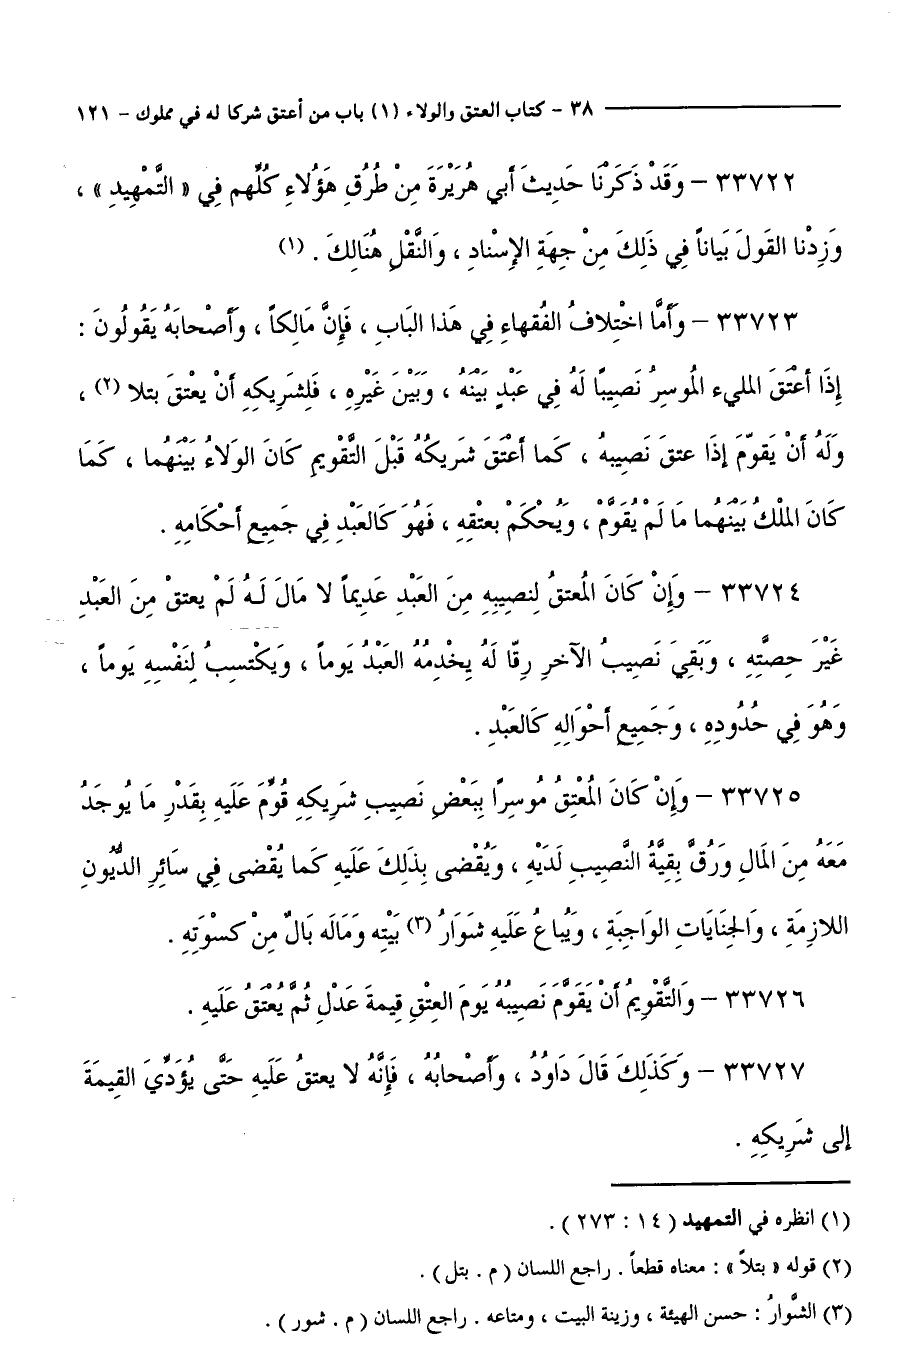 ٣٨ – كتاب العتق والولاء (١) باب من أعتق شركا له في مملوك – ١٢١
٣٣٧٢٢ – وَقَدْ ذَكَرْنَا حَدِيثَ أَبي هُرَيْرَةَ مِنْ طُرُقِ هَؤُلاءِ كُلِّهم فِي « التَّمْهِيدِ » ،
وَزِدْنا القَولَ بَيَاناً فِي ذَلِكَ مِنْ جِهَةِ الإِسْنادِ ، وَالنَّقْلِ هُنَالِكَ . (١)
٣٣٧٢٣ – وَأَمَّا اخْتِلافُ الفُقهاءِ فِي هَذا البَابِ ، فَإِنَّ مَالِكاً ، وَأَصْحابَهُ يَقُولُونَ :
إِذَا أعْتَقَ المليء المُوسِرُ نَصِيبًا لَهُ فِي عَبْدٍ بَيْنَهُ ، وَبَيْنَ غَيْرِهِ ، فَلِشَرِيكِهِ أَنْ يعْتقَ بتلا (٢) ،
وَلَهُ أَنْ يَقوّمَ إِذَا عتقَ نَصِيبهُ ، كَما أعْتَقَ شَرِيكُهُ قَبْلَ التَّقْويمِ كَانَ الوَلاءُ بَيْنَهُما ، كَمَا
كَانَ المِلْكُ بَيْنَهُما مَا لَمْ يُقوَّمْ ، وَيُحْكَمْ بعتْقِهِ ، فَهُوَ كَالعَبْدِ فِي جَمِيعِ أحْكَامِهِ .
٣٣٧٢٤ – وَإِنْ كَانَ المُعتقُ لِنصِيبِهِ مِنَ العَبْدِ عَدِيماً لا مَالَ لَهُ لَمْ يعتقْ مِنَ العَبْدِ
غَيْرَ حِصتَّهِ ، وَبَقِيَ نَصِيبُ الآخرِ رِقّا لَهُ يخْدِمُهُ العَبْدُ يَوماً ، وَيَكْتسِبُ لِنَفْسِهِ يَوماً ،
وَهُوَ فِي حُدُودِهِ ، وَجَمِيعِ أحْوَالِهِ كَالعَبْدِ .
٣٣٧٢٥ – وَإِنْ كَانَ المُعْتِقُ مُوسِرًا بِبَعْضِ نَصِيبِ شَرِيكِهِ قُوِّمَ عَلَيهِ بِقَدْرِ مَا يُوجَدُ
مَعَهُ مِنَ المَالِ وَرُقَّ بِقيَّةُ النَّصِيبِ لَدَيْهِ ، وَيُقْضى بِذَلِكَ عَلَيهِ كَما يُقْضى فِي سَائِرِ الدُّيُونِ
اللازِمَةِ ، وَالجِنَايَاتِ الوَاجِبَةِ ، وَيُباعُ عَلَيهِ شوَارُ (٣) بَيْتِه وَمَالَه بَالٌ مِنْ كسْوَتِهِ .
٣٣٧٢٦ – وَالتَّقْوِيمُ أَنْ يَقَوَّمَ نَصِيبُهُ يَومَ العِتْقِ قِيمةَ عَدْلٍ ثُمَّ يُعْتَقُ عَلَيهِ .
٣٣٧٢٧ – وَكَذَلِكَ قَالَ دَاودُ ، وَأَصْحابُهُ ، فَإِنَّهُ لا يعتقُ عَلَيهِ حَتَّى يُؤَدِّيَ القِيمَةَ
إِلى شَرِيكِهِ .
(١) انظره في التمهيد ( ١٤ : ٢٧٣ ) .
(٢) قوله « بتلاً » : معناه قطعاً . راجع اللسان ( م . بتل ) .
(٣) الشَّوارُ : حسن الهيئة ، وزينة البيت ، ومتاعه . راجع اللسان ( م . شور ) .